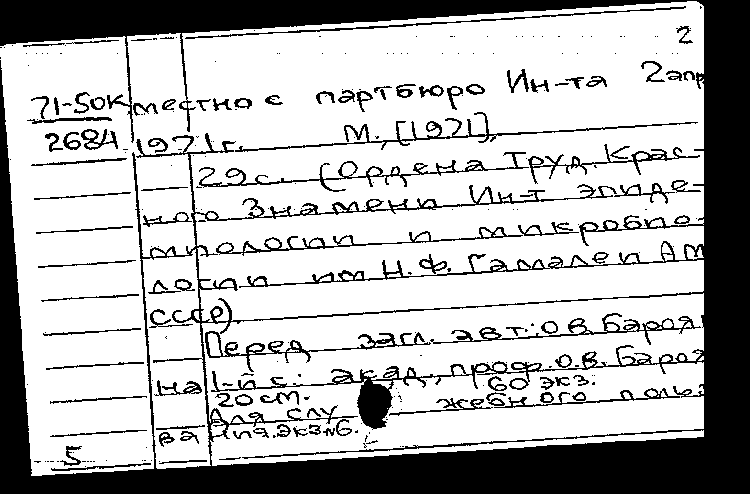 2
71-50К местно с партбюро Ин-та 2 апр
2684 1971 г. М., [1971],
29 с. (Ордена Труд. Крас-
ного Знамени Ин-т эпиде-
миологии и микробио-
логии им Н.Ф. Гамалеи АМ
СССР)
Перед загл. авт.: О.В. Бароя
на 1-й с.: акад., проф. О.В. Бароя
20 см. 60 экз.
Для слу жебного польз
ва ния. экз №6.
5